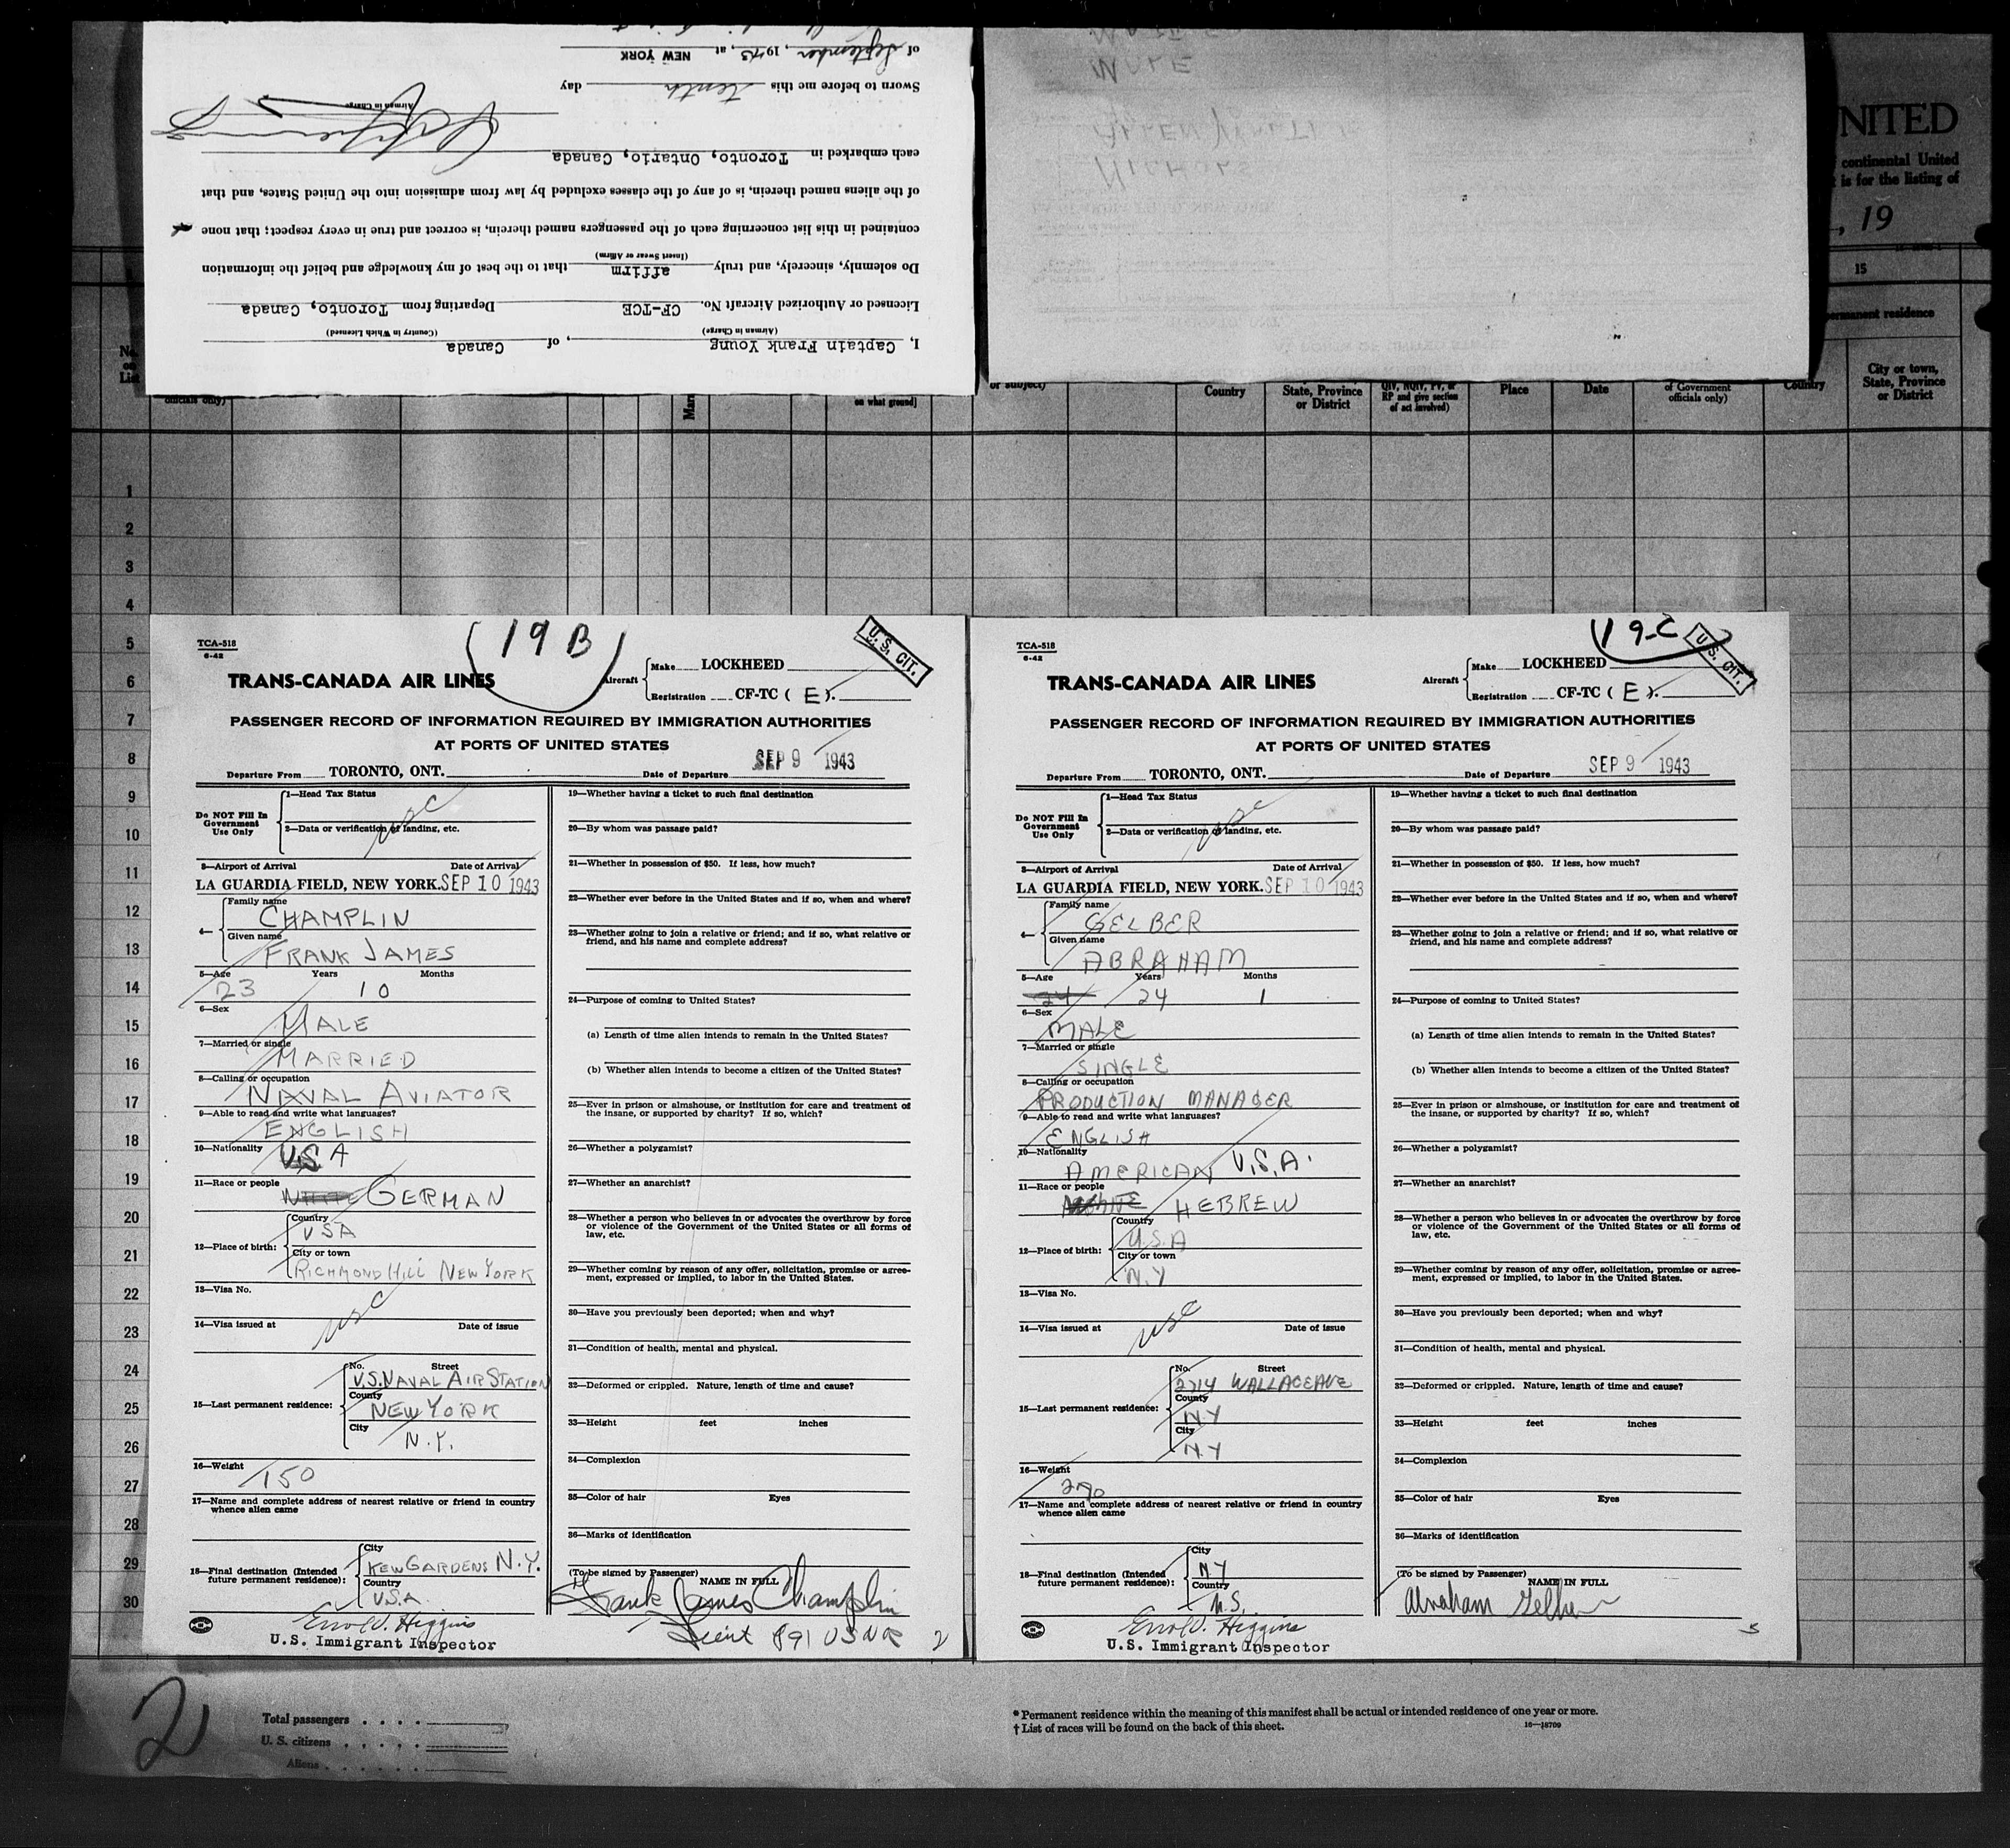 of September, 1943, at NEW YORK
Sworn to before me this tenth day
Airman in Charge
each embarked in Toronto, Ontario, Canada
of the aliens named therein, is of any of the classes excluded by law from admission into the United States, and that
contained in this list concerning each of the passengers named therein, is correct and true in every respect; that none
(Insert Swear or Affirm)
Do solemnly, sincerely, and truly affirm that to the best of my knowledge and belief the information
Licensed or Authorized Aircraft No. CF-TCE Departing from Toronto, Canada
(Airman in Charge) (Country in Which Licensed)
I, Captain Frank Young, of Canada
NITED
continental United
is for the listing of
, 19
15
permanent residence
No. on List
officials only)
on what ground]
or subject)
Country
State, Province or District
QIV, NQIV, PV, or RP and give section of act involved)
Place
Date
of Government officials only)
Country
City or town, State, Province or District
1
2
3
4
5
6
7
8
9
10
11
12
13
14
15
16
17
18
19
20
21
22
23
24
25
26
27
28
29
30
TCA-518
6-42
(19B)
U.S. CIT.
TRANS-CANADA AIR LINES
Aircraft Make LOCKHEED
Registration CF-TC (E).
PASSENGER RECORD OF INFORMATION REQUIRED BY IMMIGRATION AUTHORITIES
AT PORTS OF UNITED STATES
SEP 9 1943
Departure From TORONTO, ONT. Date of Departure
Do NOT Fill In Government Use Only
1—Head Tax Status
usc
2—Data or verification of landing, etc.
3—Airport of Arrival Date of Arrival
LA GUARDIA FIELD, NEW YORK. SEP 10 1943
4—
Family name
CHAMPLIN
Given name
FRANK JAMES
5—Age Years Months
23 10
6—Sex
MALE
7—Married or single
MARRIED
8—Calling or occupation
NAVAL AVIATOR
9—Able to read and write what languages?
ENGLISH
10—Nationality
USA
11—Race or people
WHITE GERMAN
12—Place of birth:
Country
USA
City or town
RICHMOND HILL NEW YORK
13—Visa No.
usc
14—Visa issued at Date of issue
15—Last permanent residence:
No. Street
U.S. NAVAL AIR STATION
County
NEW YORK
City
N.Y.
16—Weight
150
17—Name and complete address of nearest relative or friend in country
whence alien came
18—Final destination (Intended
future permanent residence):
City
KEW GARDENS N.Y.
Country
U.S.A.
Errol D. Higgins
U.S. Immigrant Inspector
19—Whether having a ticket to such final destination
20—By whom was passage paid?
21—Whether in possession of $50. If less, how much?
22—Whether ever before in the United States and if so, when and where?
23—Whether going to join a relative or friend; and if so, what relative or
friend, and his name and complete address?
24—Purpose of coming to United States?
(a) Length of time alien intends to remain in the United States?
(b) Whether alien intends to become a citizen of the United States?
25—Ever in prison or almshouse, or institution for care and treatment of
the insane, or supported by charity? If so, which?
26—Whether a polygamist?
27—Whether an anarchist?
28—Whether a person who believes in or advocates the overthrow by force
or violence of the Government of the United States or all forms of
law, etc.
29—Whether coming by reason of any offer, solicitation, promise or agree-
ment, expressed or implied, to labor in the United States.
30—Have you previously been deported; when and why?
31—Condition of health, mental and physical.
32—Deformed or crippled. Nature, length of time and cause?
33—Height feet inches
34—Complexion
35—Color of hair Eyes
36—Marks of identification
(To be signed by Passenger) NAME IN FULL
Frank James Champlin
Lieut USNR 2
TCA-518
6-42
19-C
U.S. CIT.
TRANS-CANADA AIR LINES
Aircraft Make LOCKHEED
Registration CF-TC (E).
PASSENGER RECORD OF INFORMATION REQUIRED BY IMMIGRATION AUTHORITIES
AT PORTS OF UNITED STATES
SEP 9 1943
Departure From TORONTO, ONT. Date of Departure
Do NOT Fill In Government Use Only
1—Head Tax Status
usc
2—Data or verification of landing, etc.
3—Airport of Arrival Date of Arrival
LA GUARDIA FIELD, NEW YORK. SEP 10 1943
4—
Family name
GELBER
Given name
ABRAHAM
5—Age Years Months
24 24 1
6—Sex
MALE
7—Married or single
SINGLE
8—Calling or occupation
PRODUCTION MANAGER
9—Able to read and write what languages?
ENGLISH
10—Nationality
AMERICAN U.S.A.
11—Race or people
HEBREW
12—Place of birth:
Country
U.S.A
City or town
N.Y
13—Visa No.
usc
14—Visa issued at Date of issue
15—Last permanent residence:
No. Street
2714 WALLACE AVE
County
N.Y
City
N.Y
16—Weight
270
17—Name and complete address of nearest relative or friend in country
whence alien came
18—Final destination (Intended
future permanent residence):
City
NY
Country
U.S.
Errol D. Higgins
U.S. Immigrant Inspector
19—Whether having a ticket to such final destination
20—By whom was passage paid?
21—Whether in possession of $50. If less, how much?
22—Whether ever before in the United States and if so, when and where?
23—Whether going to join a relative or friend; and if so, what relative or
friend, and his name and complete address?
24—Purpose of coming to United States?
(a) Length of time alien intends to remain in the United States?
(b) Whether alien intends to become a citizen of the United States?
25—Ever in prison or almshouse, or institution for care and treatment of
the insane, or supported by charity? If so, which?
26—Whether a polygamist?
27—Whether an anarchist?
28—Whether a person who believes in or advocates the overthrow by force
or violence of the Government of the United States or all forms of
law, etc.
29—Whether coming by reason of any offer, solicitation, promise or agree-
ment, expressed or implied, to labor in the United States.
30—Have you previously been deported; when and why?
31—Condition of health, mental and physical.
32—Deformed or crippled. Nature, length of time and cause?
33—Height feet inches
34—Complexion
35—Color of hair Eyes
36—Marks of identification
(To be signed by Passenger) NAME IN FULL
Abraham Gelber
2
Total passengers . . . .
U.S. citizens . . . . .
Aliens . . . . . .
* Permanent residence within the meaning of this manifest shall be actual or intended residence of one year or more.
† List of races will be found on the back of this sheet. 16—18709